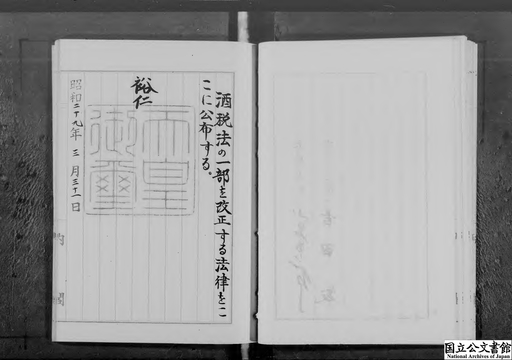 酒税法の一部を改正する法律をこ
こに公布する。
裕仁
天皇御璽
昭和二十九年三月三十一日
内閣
国立公文書館
National Archives of Japan